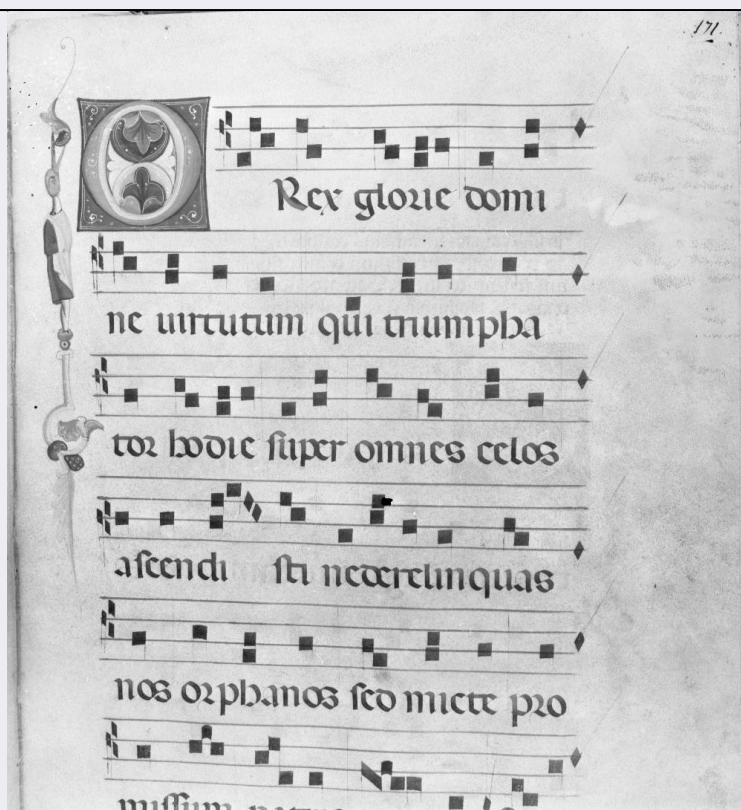 171.
O Rex glorie domi
ne uirtutum qui triumpha
tor hodie super omnes celos
ascendi sti nederelinquas
nos orphanos sed micte pro
missum patris